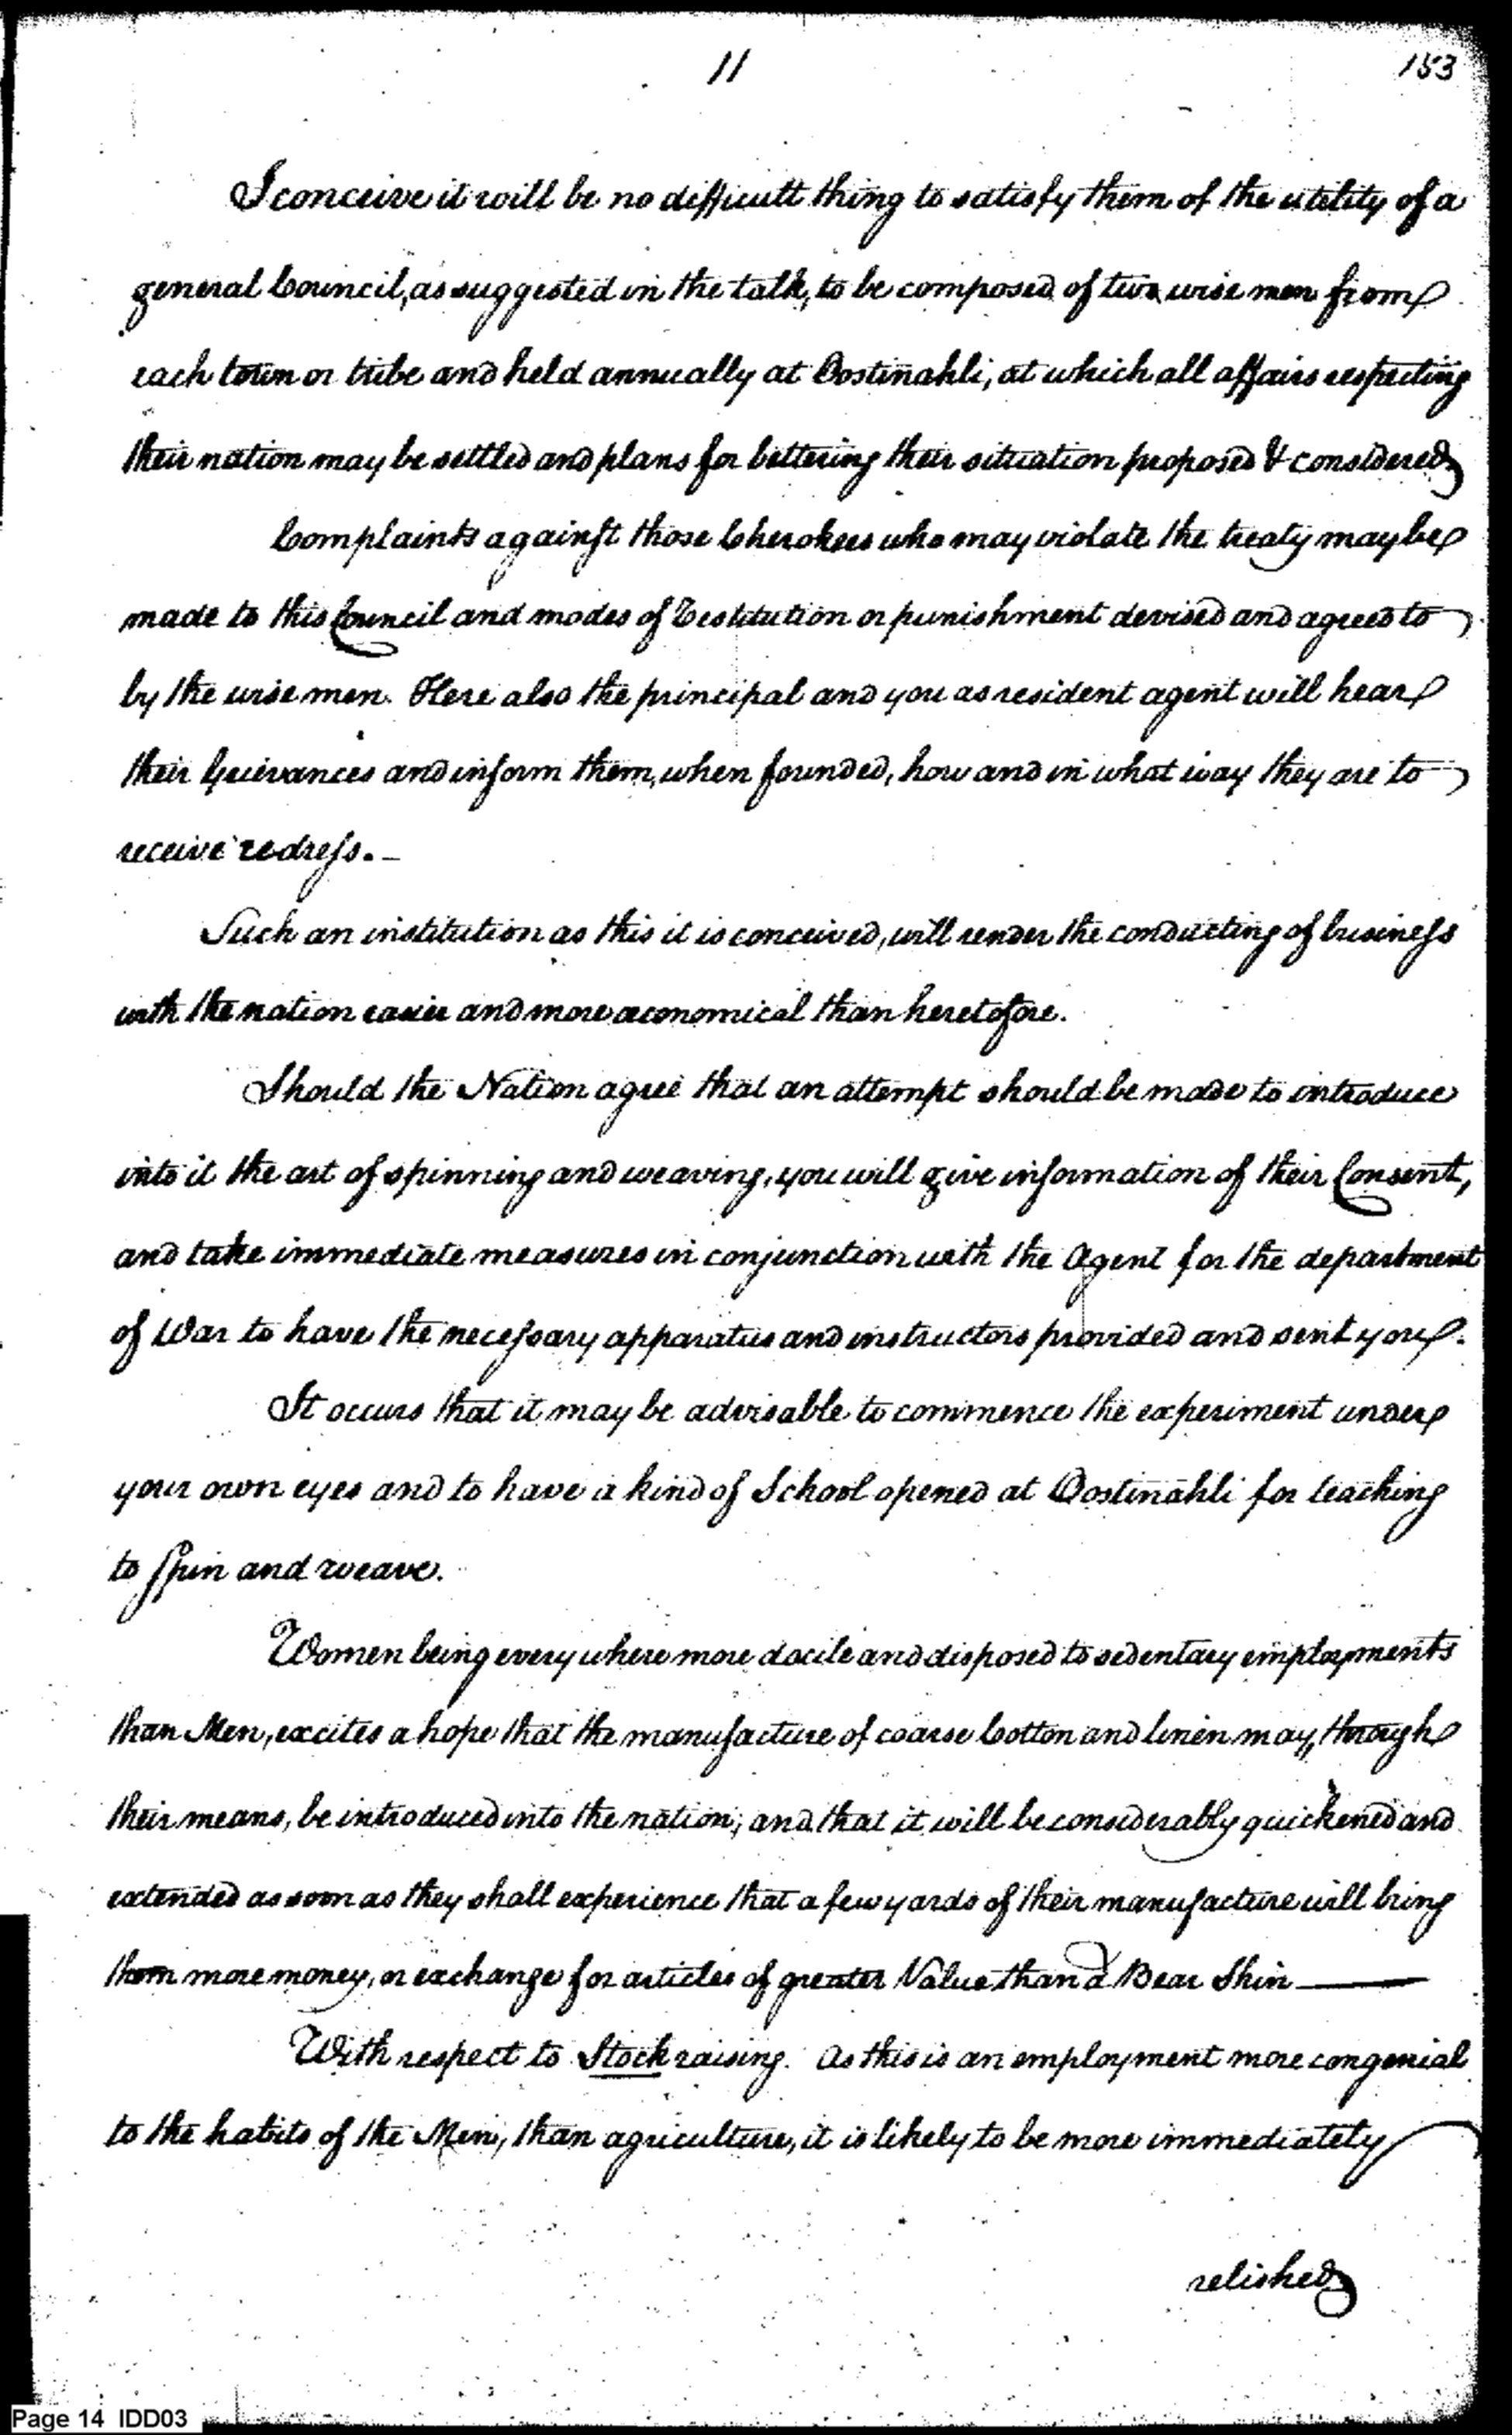 11
153
I conceive it will be no difficult thing to satisfy them of the utility of a
general Council, as suggested in the talk, to be composed of two wise men from
each town or tribe and held annually at Oostinahli, at which all affairs respecting
their nation may be settled and plans for bettering their situation proposed & considered
Complaints against those Cherokees who may violate the treaty may be
made to this Council and modes of restitution or punishment devised and agreed to
by the wise men. Here also the principal and you as resident agent will hear
their Grievances and inform them, when founded, how and in what way they are to
receive redress. –
Such an institution as this it is conceived, will render the conducting of business
with the nation easier and more œconomical than heretofore.
Should the Nation agree that an attempt should be made to introduce
into it the art of spinning and weaving, you will give information of their Consent,
and take immediate measures in conjunction with the Agent for the department
of War to have the necessary apparatus and instructors provided and sent you.
It occurs that it may be advisable to commence the experiment under
your own eyes and to have a kind of School opened at Oostinahli for teaching
to spin and weave.
Women being every where more docile and disposed to sedentary employments
than Men, excites a hope that the manufacture of coarse Cotton and linen may, through
their means, be introduced into the nation; and that it will be considerably quickened and
extended as soon as they shall experience that a few yards of their manufacture will bring
them more money, or exchange for articles of greater Value than a Bear Skin —
With respect to Stock raising. As this is an employment more congenial
to the habits of the Men, than agriculture, it is likely to be more immediately
relished
Page 14 IDD03